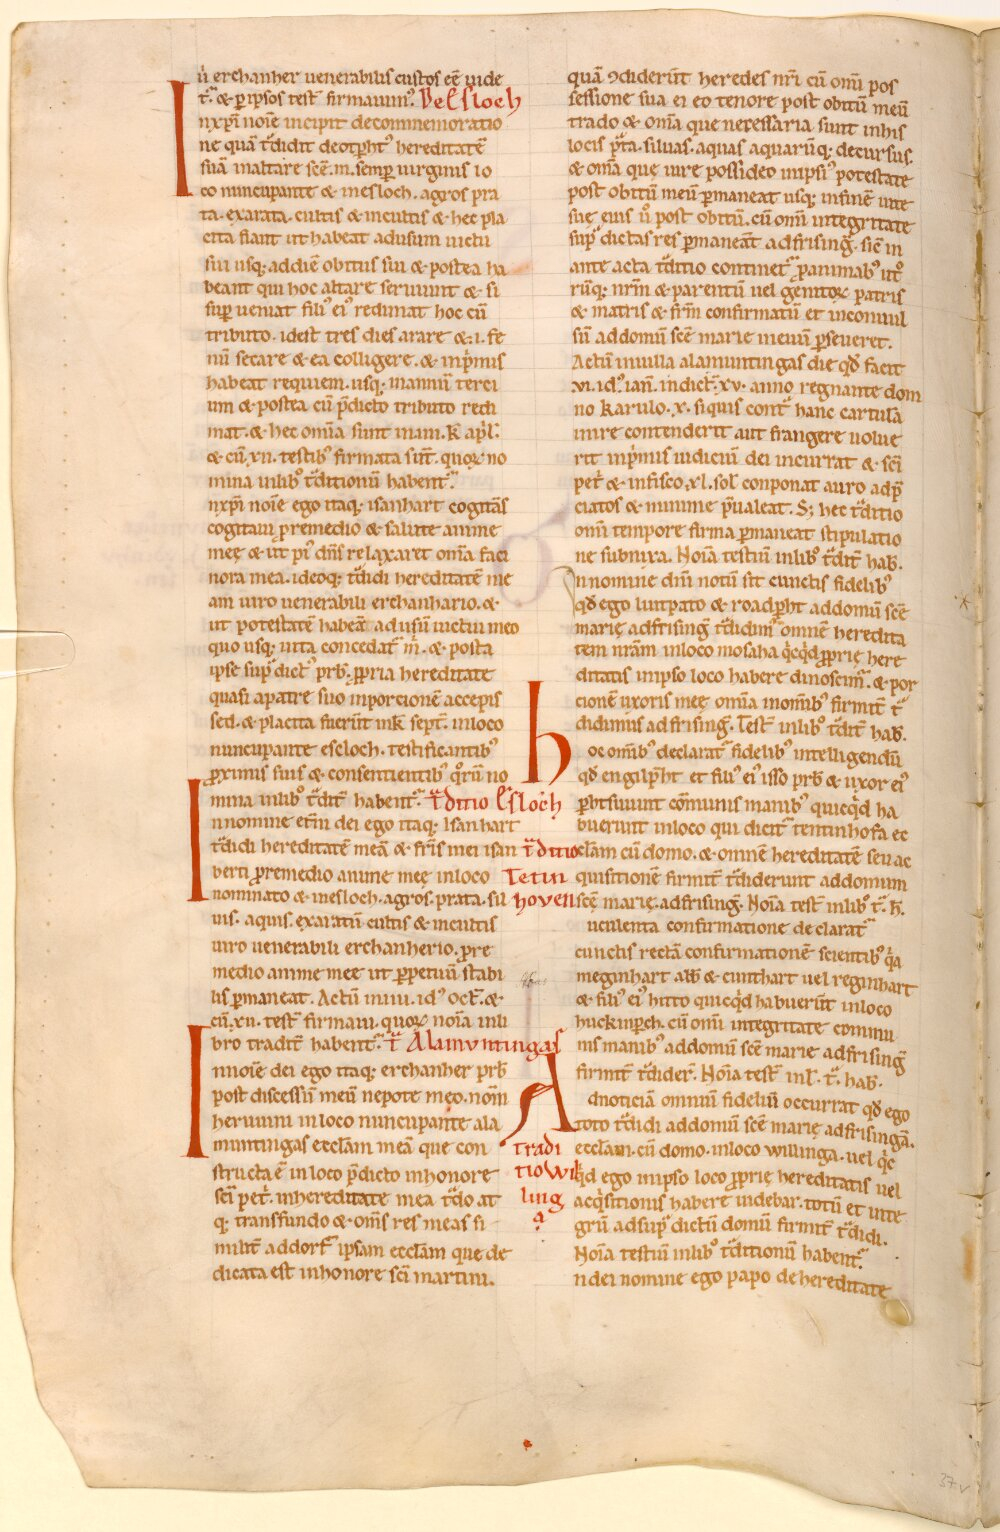 ů erchanher uenerabilis custos eē uide
t᷑. & ꝑ ipsos test̄ firmauim᷒. De Esloch
nxp̄i noīe incipit decommemoratio
ne quā t̄didit deotpht᷒ hereditatē
suā inaltare scē.m̄.semꝑ uirginis. lo
co nuncupante & inesloch. agros pra
ta. exarata. cultis & incultis & hec pla
cita fiant ut habeat adusum uictu
sui usq; addiē obitus sui & postea ha
beant qui hoc altare seruiunt & si
suꝑ ueniat fili᷒ ei᷒ redimat hoc cū
tributo. idest tres dies arare &.i. fe
nū secare & ea colligere. & inp̄mis
habeat requiem. usq; mannū terci
um & postea cū p̄dicto tributo redi
mat. & hec omīa sunt inam. k̄ apl̄.
& cū.xii. testib᷒ firmata sūt. quoꝝ no
mina inlib᷒ t̄ditionū habent᷑.
nxp̄i noīe ego itaq; isanhart cogitās
cogitaui premedio & salute anime
meę & ut pi᷒ dn̄s relaxaret omīa faci
nora mea. ideoq; t̄didi hereditatē me
am uiro uenerabili erchanhario. &
ut potestatē habeā adusū uictui meo
quo usq; uita concedat᷑ m̄. & postea
ipse sup̄ dict᷒ prb̄. ꝓpria hereditate
quasi apatre suo inporcionē accepis
sed. & placita fuer̄t ink̄ sept̄. inloco
nuncupante escloch. testificantib᷒
ꝓximis suis & consentientib᷒ q̄rū no
mina inlib᷒ t̄dit̄ habent᷑. t̄ditio Esloch
nnomine et̄ni dei ego itaq; Isanhart
t̄didi hereditatē meā & fr̄is mei isan
berti ꝓremedio anime meę inloco
nominato & inesloch. agros. prata. sil
uis. aquis. exaratū cultis & incultis
uiro uenerabili erchanherio. ꝓre
medio anime mee ut ꝑpetuū stabi
lis ꝑmaneat. Actū iniiii. id᷒ oct̄. &
cū.xii. test̄ firmaui. quoꝝ noīa inli
bro tradit̄ habent᷑. t̄ Alamuntingas
nnoīe dei ego itaq; erchanher prb̄
post discessū meū nepote meo. nom̄
heruuini inloco nuncupante ala
muntingas ecclām meā que con
structa ē in loco p̄dicto inhonore
scī pet̄. inhereditate mea t̄do at
q; transfundo & om̄s res meas si
milit̄ addorf᷑ ipsam ecclām que de
dicata est inhonore scī martini.
quā ꝯdiderūt heredes nr̄i cū omī pos
sessione sua ei eo tenore post obitū meū
trado & omīa que necessaria sunt inhis
locis p̄ta. siluas. aquas aquarūq; decursus.
& omīa quę iure possideo inipsi᷒ potestate
post obitū meū ꝑmaneat usq; infinē uite
suę eius ū post obitū. cū omī integritate
sup̄ dictas res ꝑmaneāt adfrising̅. sic̄ in
ante acta t̄ditio continet᷑ ꝓanimab᷒ ut᷑
rūq; nr̄m & parentū uel genitoꝝ patris
& matris & fr̄m confirmatū et inconuul
sū addomū scē marie inęuū ꝑseueret.
Actū inuilla alamuntingas die qd̄ facit
vi. id᷒. ian̄. indict̄. xv. anno regnante dom
no karulo. x. siquis cont᷑ hanc cartulā
inire contenderit aut frangere uolue
rit inp̄mis iudiciū dei incurrat & scī
pet̄ & infisco. xl. sol̄ conponat auro adp̄
ciatos & minime p̄ualeat. S; hec t̄ditio
omī tempore firma ꝑmaneat stipulatio
ne subnixa. Noīa testiū inlib᷒ t̄dit̄ hab̄.
nnomine dnī notū sit cunctis fidelib᷒
qd̄ ego luitpato & roadpht addomū scē
marię adfrising̅ t̄didim᷒ omnē heredita
tem nrām inloco mosaha q̄cq̄d ꝓprię here
ditatis inipso loco habere dinoscim᷒. & por
cionē uxoris meę omīa inomīb᷒ firmit̄ t̄
didimus adfrising̅. Test̄ inlib᷒ t̄dit̄ hab̄.
oc omīb᷒ declarat᷑ fidelib᷒ intelligendū
qd̄ engilpht et fili᷒ ei᷒ isso prb̄ & uxor ei᷒
phtsuuint cōmunis manib᷒ quicq̄d ha
buerunt inloco qui dicit᷑ tentinhofa ec
t̄ditio clām cū domo. & omnē hereditatē seu ac
Tetin quisitionē firmit̄ t̄diderunt addomum
hoven scę marię. adfrising̅. Noīa test̄ inlib᷒ t̄. h̄.
uculenta confirmatione declarat᷑
cunctis rectā confirmationē scientib᷒ q̄a
meginhart abb̄ & cunthart uel reginhart
& fili᷒ ei᷒ hitto quicq̄d habuerūt inloco
huckinpch. cū omī integritate commu
nis manib᷒ addomū scē marie adfrising̅
firmit̄ t̄dider̄. Noīa test̄ inl̄. t̄. hab̄.
A dnoticiā omnium fidelium occurrat qd̄ ego
toto t̄didi addomū scē marię adfrisingā.
tradi ecclām. cū domo. inloco willinga. uel q̄c
tio wil q̄d ego inipso loco ꝓprię hereditatis uel
ling acq̄sitionis habere uidebar. totū et inte
a grū adsup̄ dictū domū firmit̄ t̄didi.
Noīa testiū inlib᷒ t̄ditionū habent᷑.
ndei nomine ego papo de hereditate
37v